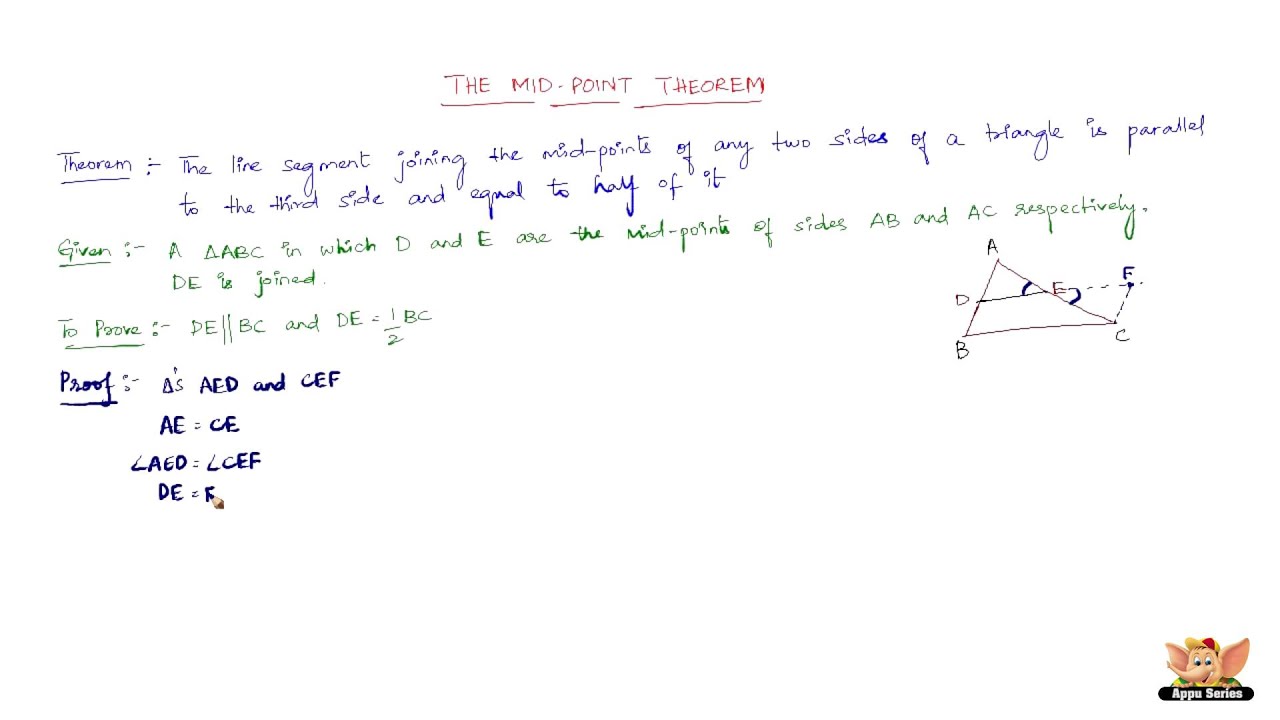 THE MID-POINT THEOREM
Theorem :- The line segment joining the mid-points of any two sides of a triangle is parallel
to the third side and equal to half of it
Given :- A ΔABC in which D and E are the mid-points of sides AB and AC respectively.
DE is joined.
To Prove :- DE || BC and DE = 1/2 BC
Proof :- Δ's AED and CEF
AE = CE
∠AED = ∠CEF
DE = F
A
F
E
D
C
B
Appu Series